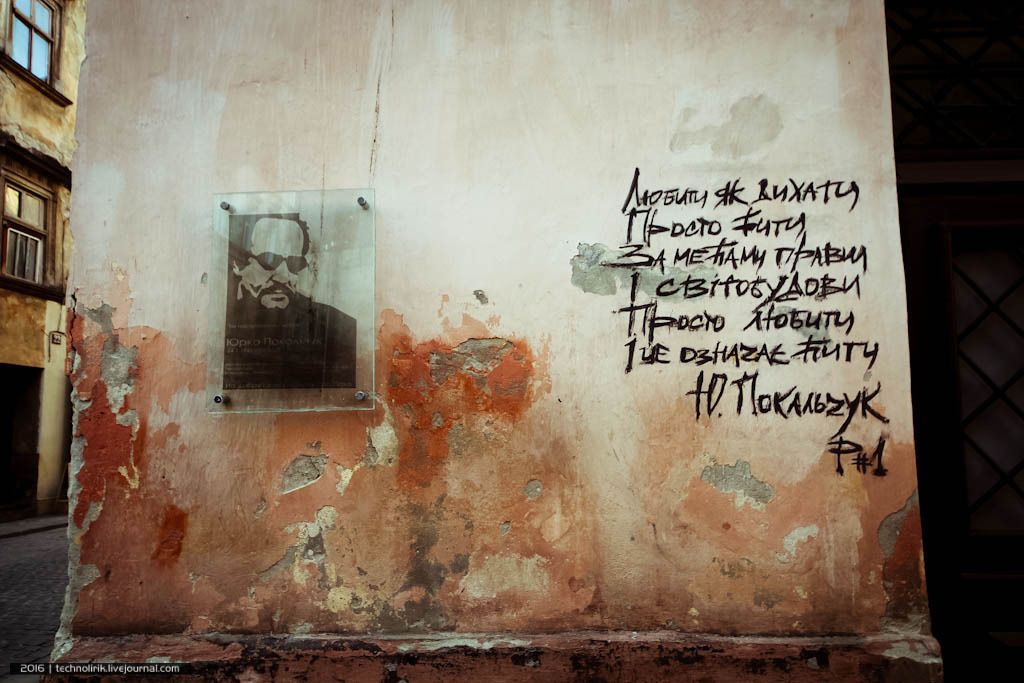 Юрко Покальчук
Любити як дихати
Просто жити
За межами правил
І світобудови
Просто любити
І це означає жити
Ю. Покальчук
Р#1
2016 | technolirik.livejournal.com